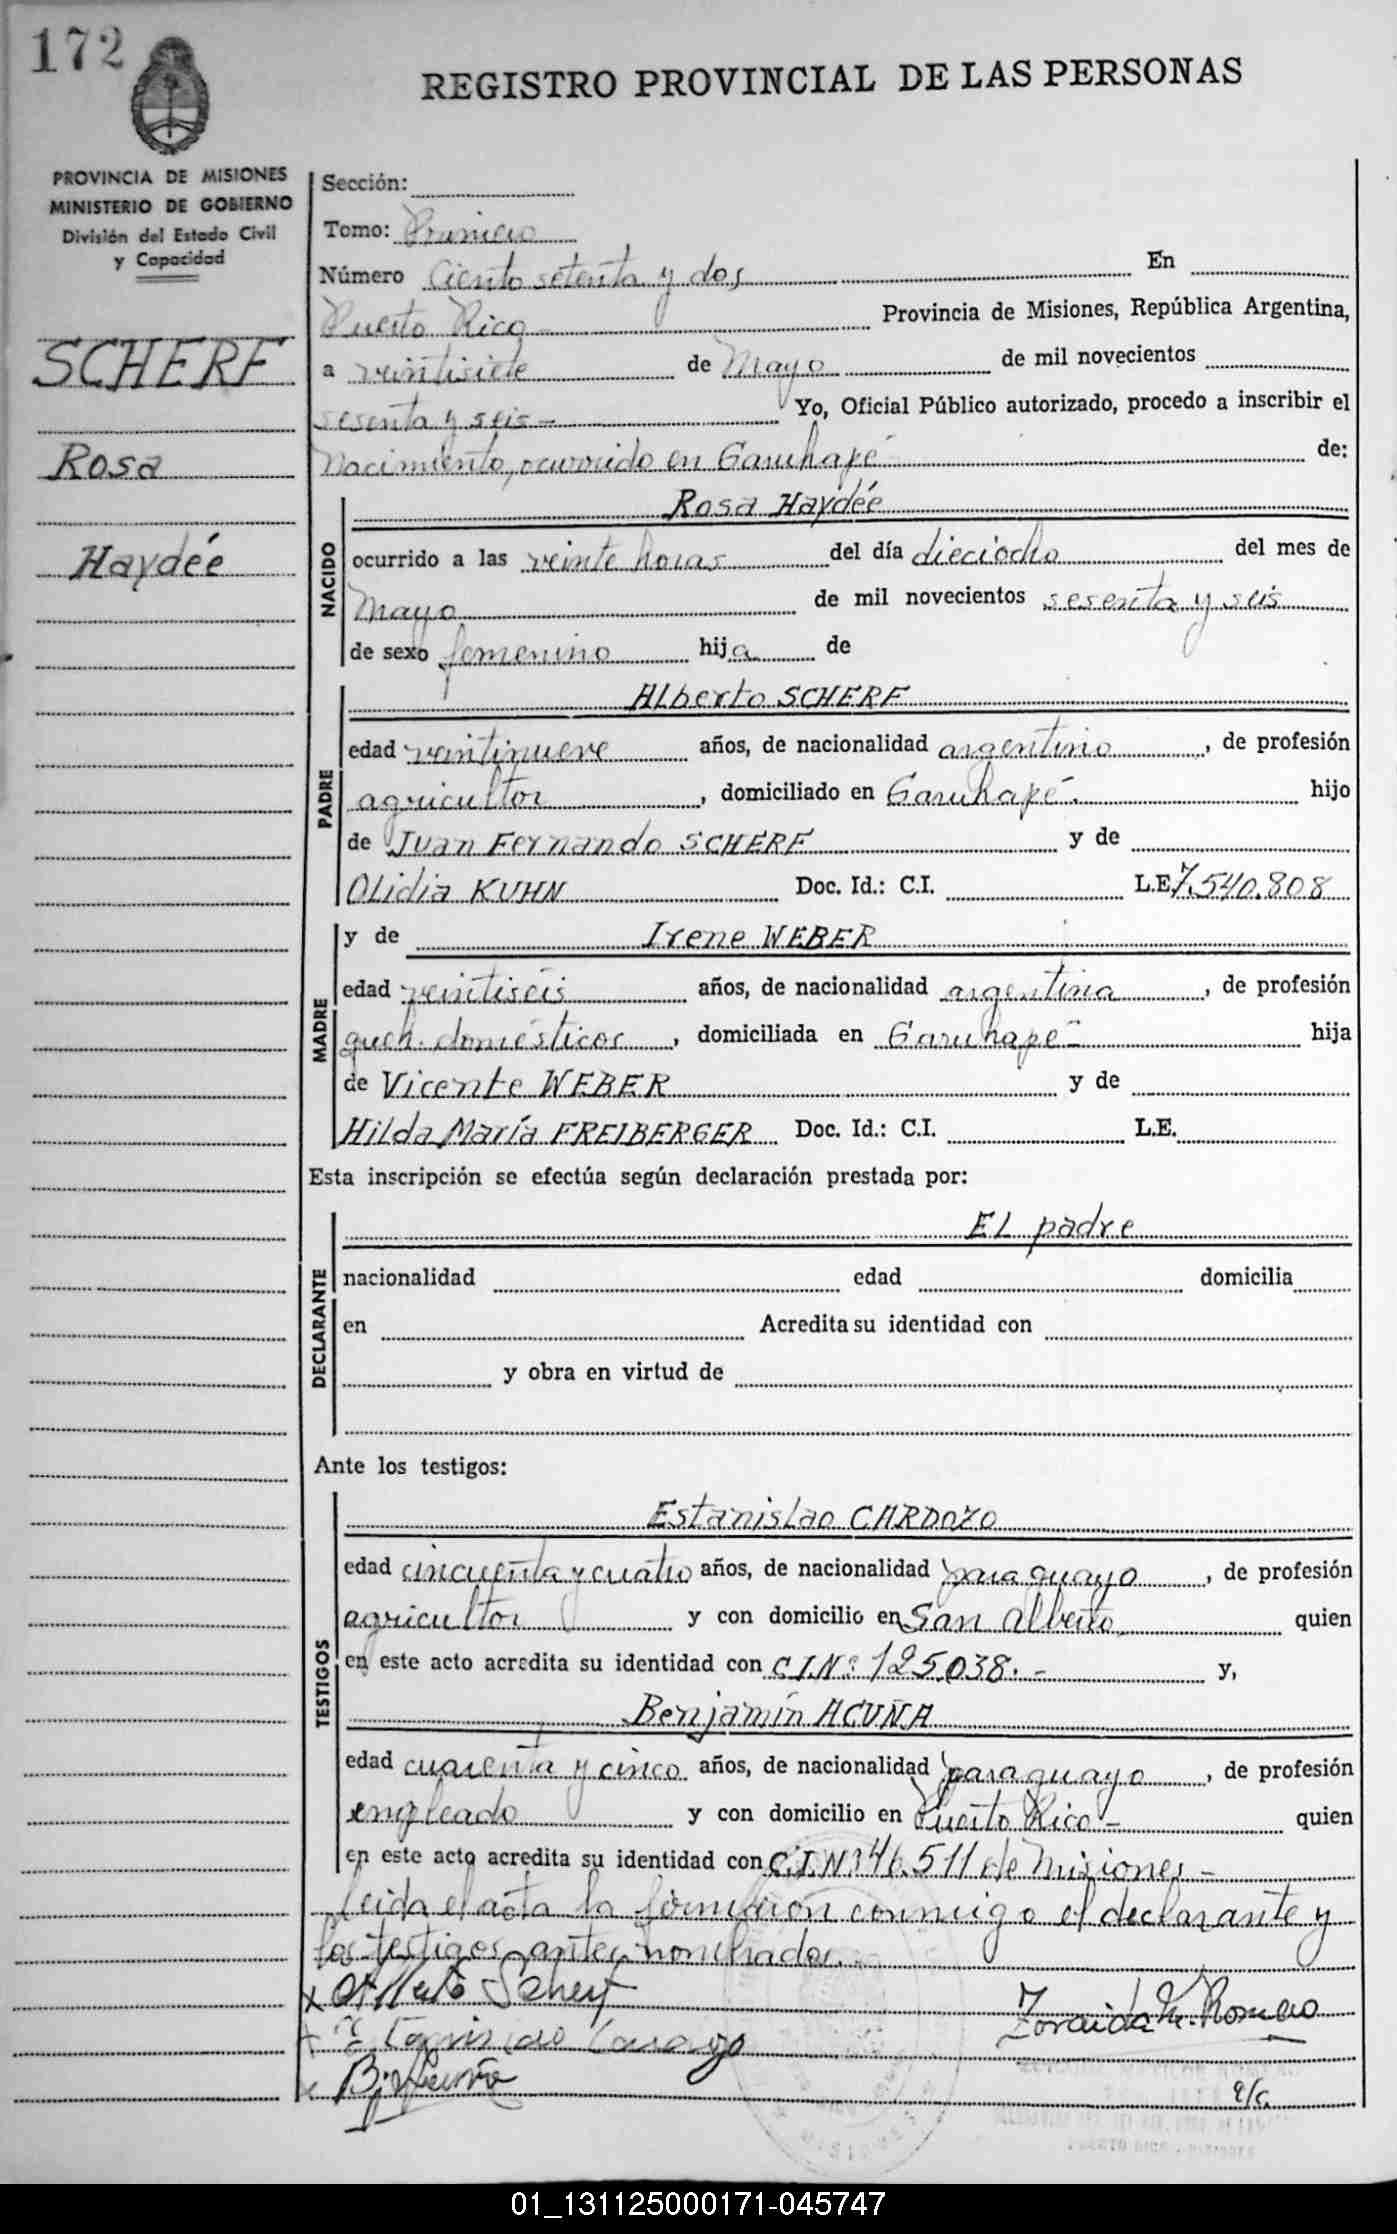 172
REGISTRO PROVINCIAL DE LAS PERSONAS
PROVINCIA DE MISIONES
MINISTERIO DE GOBIERNO
División del Estado Civil
y Capacidad
SCHERF
Rosa
Haydée
Sección:
Tomo: Primero
Número Ciento setenta y dos En
Puerto Rico - Provincia de Misiones, República Argentina,
a veintisiete de Mayo de mil novecientos
sesenta y seis - Yo, Oficial Público autorizado, procedo a inscribir el
nacimiento, ocurrido en Garuhapé de:
NACIDO
Rosa Haydée
ocurrido a las veinte horas del día dieciocho del mes de
Mayo de mil novecientos sesenta y seis
de sexo femenino hija de
PADRE
Alberto SCHERF
edad veintinueve años, de nacionalidad argentino, de profesión
agricultor, domiciliado en Garuhapé. hijo
de Juan Fernando SCHERF y de
Olidia KUHN Doc. Id.: C.I. L.E. 7.540.808
MADRE
y de Irene WEBER
edad veintiseis años, de nacionalidad argentina, de profesión
queh. domésticos, domiciliada en Garuhapé - hija
de Vicente WEBER y de
Hilda María FREIBERGER Doc. Id.: C.I. L.E.
Esta inscripción se efectúa según declaración prestada por:
DECLARANTE
El padre
nacionalidad edad domicilia
en Acredita su identidad con
y obra en virtud de
Ante los testigos:
TESTIGOS
Estanislao CARDOZO
edad cincuenta y cuatro años, de nacionalidad paraguayo, de profesión
agricultor y con domicilio en San Alberto quien
en este acto acredita su identidad con C.I.Nº 125.038. - y,
Benjamín ACUÑA
edad cuarenta y cinco años, de nacionalidad paraguayo, de profesión
empleado y con domicilio en Puerto Rico - quien
en este acto acredita su identidad con C.I.Nº 46.511 de Misiones -
leida el acta la firmaron conmigo el declarante y
los testigos antes nombrados.
x Alberto Scherf
Zoraida K. Romero
x Estanislao Cardozo
x B. Acuña
e/c.
PUERTO RICO - MISIONES
01_131125000171-045747